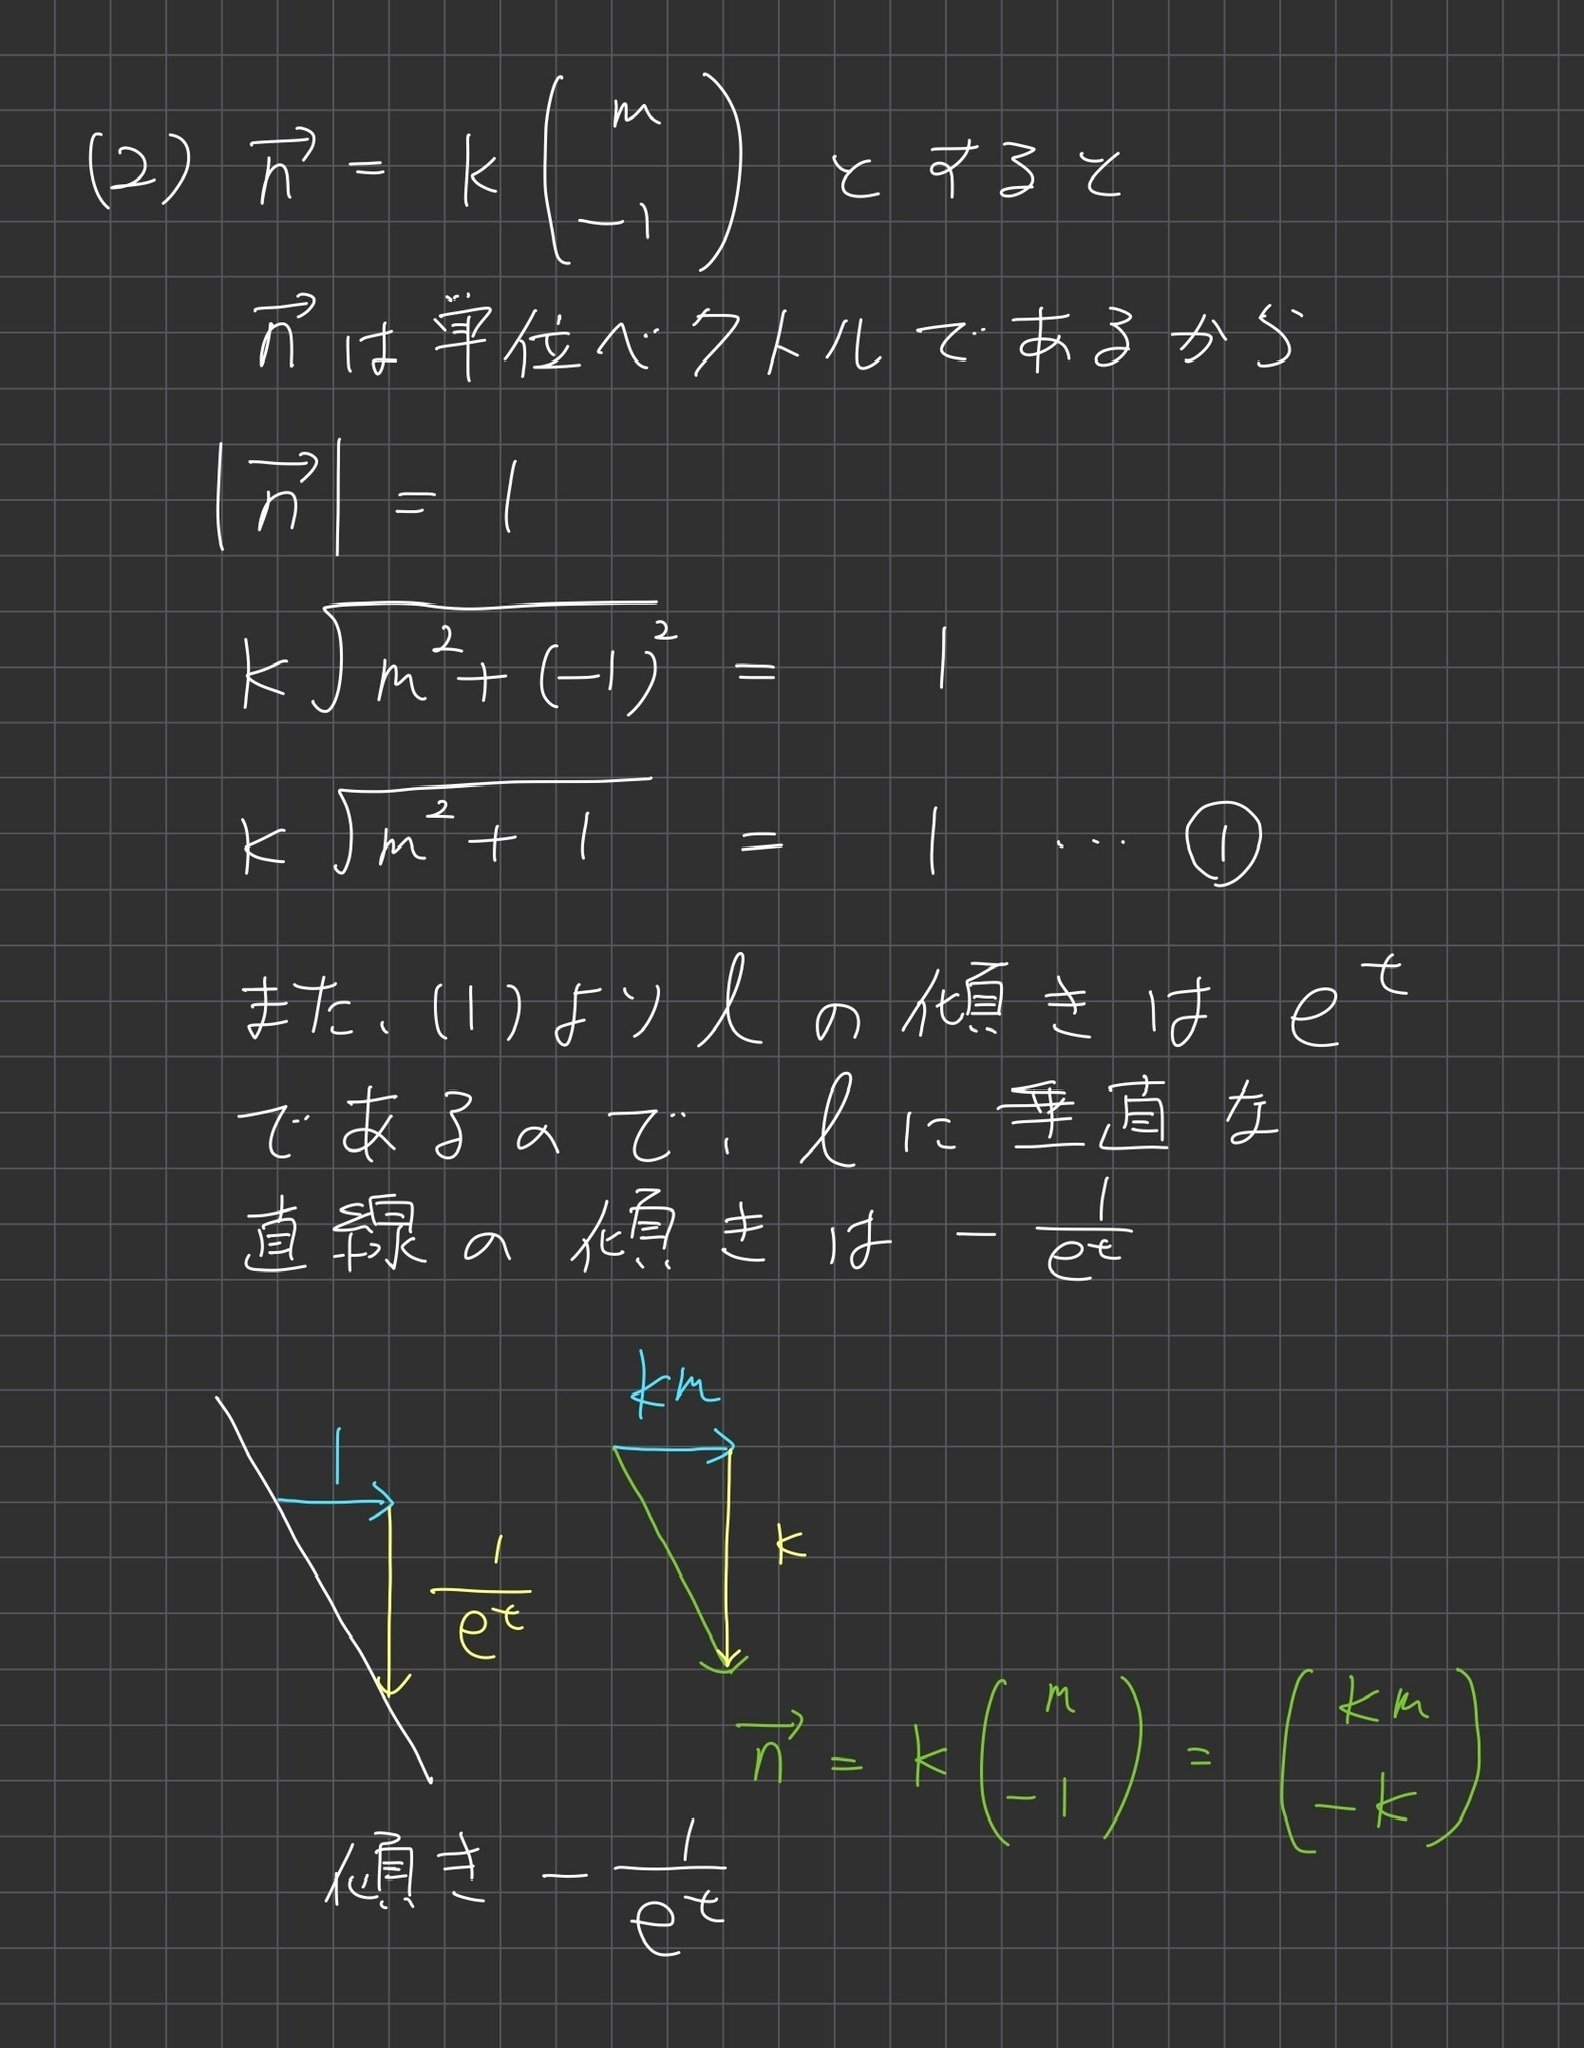 (2) n⃗ = k ( m -1 ) とすると
n⃗ は単位ベクトルであるから
|n⃗| = 1
k√(m² + (-1)²) = 1
k√(m² + 1) = 1 … ①
また、(1)より l の傾きは e^t
であるので、l に垂直な
直線の傾きは - 1/e^t
1
1/e^t
km
k
n⃗ = k ( m -1 ) = ( km -k )
傾き - 1/e^t